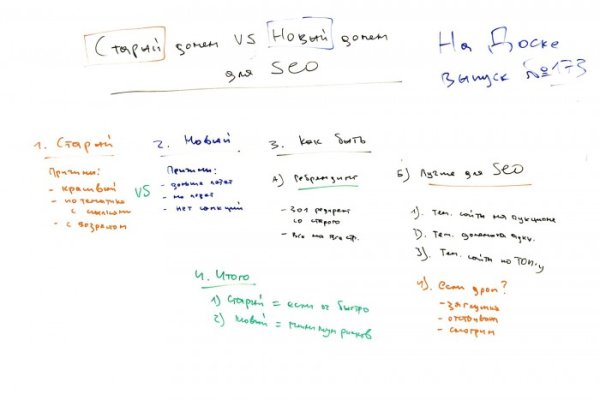 Старый домен VS Новый домен
для SEO
На Доске
выпуск №173
1. Старый
Причины:
- красивый
- по тематике
с ссылками
- с возрастом
VS
2. Новый
Причины:
- дольше
- нет санкций
3. Как быть
А) Ребрендинг
- 301 редирект
со старого
- Все на все стр.
Б) Лучше для SEO
1). Тем. сайты на аукционе
2). Тем. домены аукц.
3). Тем. сайты по ТОП-у
4). если дроп?
- заглушка
- отстой
- смотрим
4. Итого
1) Старый = если оч быстро
2) Новый = минимум рисков